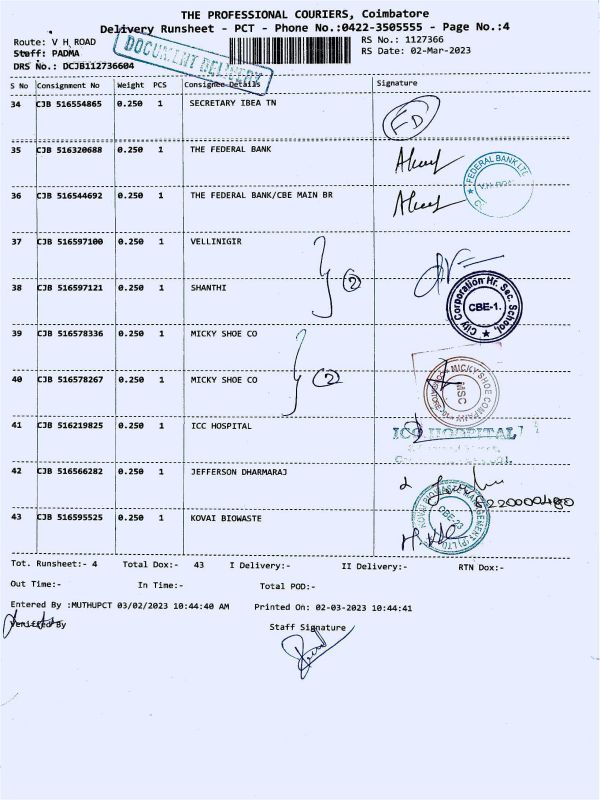 THE PROFESSIONAL COURIERS, Coimbatore
Delivery Runsheet - PCT - Phone No.:0422-3505555 - Page No.:4
Route: V H ROAD
RS No.: 1127366
Staff: PADMA
RS Date: 02-Mar-2023
DRS No.: DCJB112736604
DOCUMENT DELIVERY
S No Consignment No Weight PCS Consignee Details Signature
34 CJB 516554865 0.250 1 SECRETARY IBEA TN
FD
35 CJB 516320688 0.250 1 THE FEDERAL BANK
FEDERAL BANK LTD
36 CJB 516544692 0.250 1 THE FEDERAL BANK/CBE MAIN BR
37 CJB 516597100 0.250 1 VELLINIGIR
2
38 CJB 516597121 0.250 1 SHANTHI
City Corporation Hr. Sec. School,
CBE-1.
39 CJB 516578336 0.250 1 MICKY SHOE CO
2
40 CJB 516578267 0.250 1 MICKY SHOE CO
MICKY SHOE COMPANY
MSC
41 CJB 516219825 0.250 1 ICC HOSPITAL
ICC HOSPITAL
42 CJB 516566282 0.250 1 JEFFERSON DHARMARAJ
43 CJB 516595525 0.250 1 KOVAI BIOWASTE
KOVAI BIOWASTE MANAGEMENT (P) LTD
CBE-23
Tot. Runsheet:- 4 Total Dox:- 43 I Delivery:- II Delivery:- RTN Dox:-
Out Time:- In Time:- Total POD:-
Entered By :MUTHUPCT 03/02/2023 10:44:40 AM Printed On: 02-03-2023 10:44:41
Verified By Staff Signature